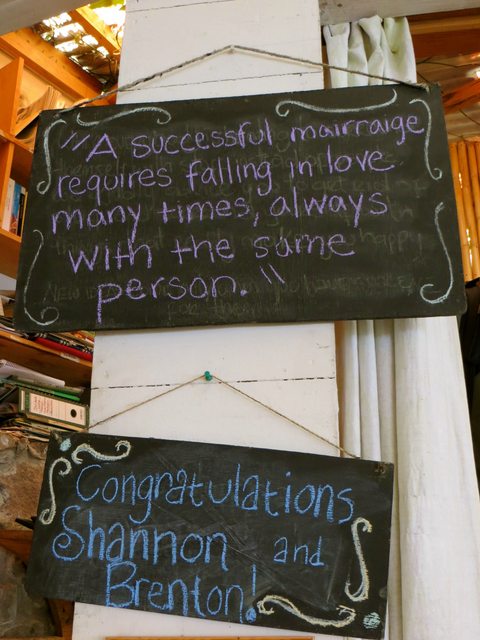 "A successful mairraige
requires falling in love
many times, always
with the same
person."
Congratulations
Shannon and
Brenton!